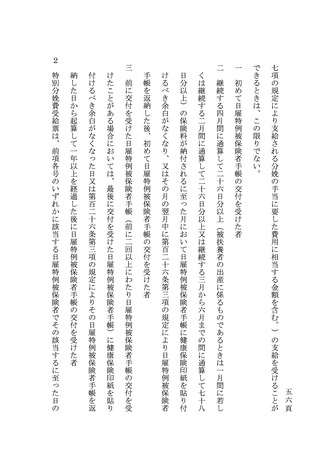 五六頁
七項の規定により支給される分娩の手当に要した費用に相当する金額を含む。）の支給を受けることが
できるときは、この限りでない。
一　初めて日雇特例被保険者手帳の交付を受けた者
二　継続する四月間に通算して二十六日分以上（被扶養者の出産に係るものであるときは一月間に若し
くは継続する二月間に通算して二十六日分以上又は継続する三月から六月までの間に通算して七十八
日分以上）の保険料が納付されるに至った月において日雇特例被保険者手帳に健康保険印紙を貼り付
けるべき余白がなくなり、又はその月の翌月中に第百二十六条第三項の規定により日雇特例被保険者
手帳を返納した後、初めて日雇特例被保険者手帳の交付を受けた者
三　前に交付を受けた日雇特例被保険者手帳（前に二回以上にわたり日雇特例被保険者手帳の交付を受
けたことがある場合においては、最後に交付を受けた日雇特例被保険者手帳）に健康保険印紙を貼り
付けるべき余白がなくなった日又は第百二十六条第三項の規定によりその日雇特例被保険者手帳を返
納した日から起算して一年以上を経過した後に日雇特例被保険者手帳の交付を受けた者
2　特別分娩費受給票は、前項各号のいずれかに該当する日雇特例被保険者でその該当するに至った日の